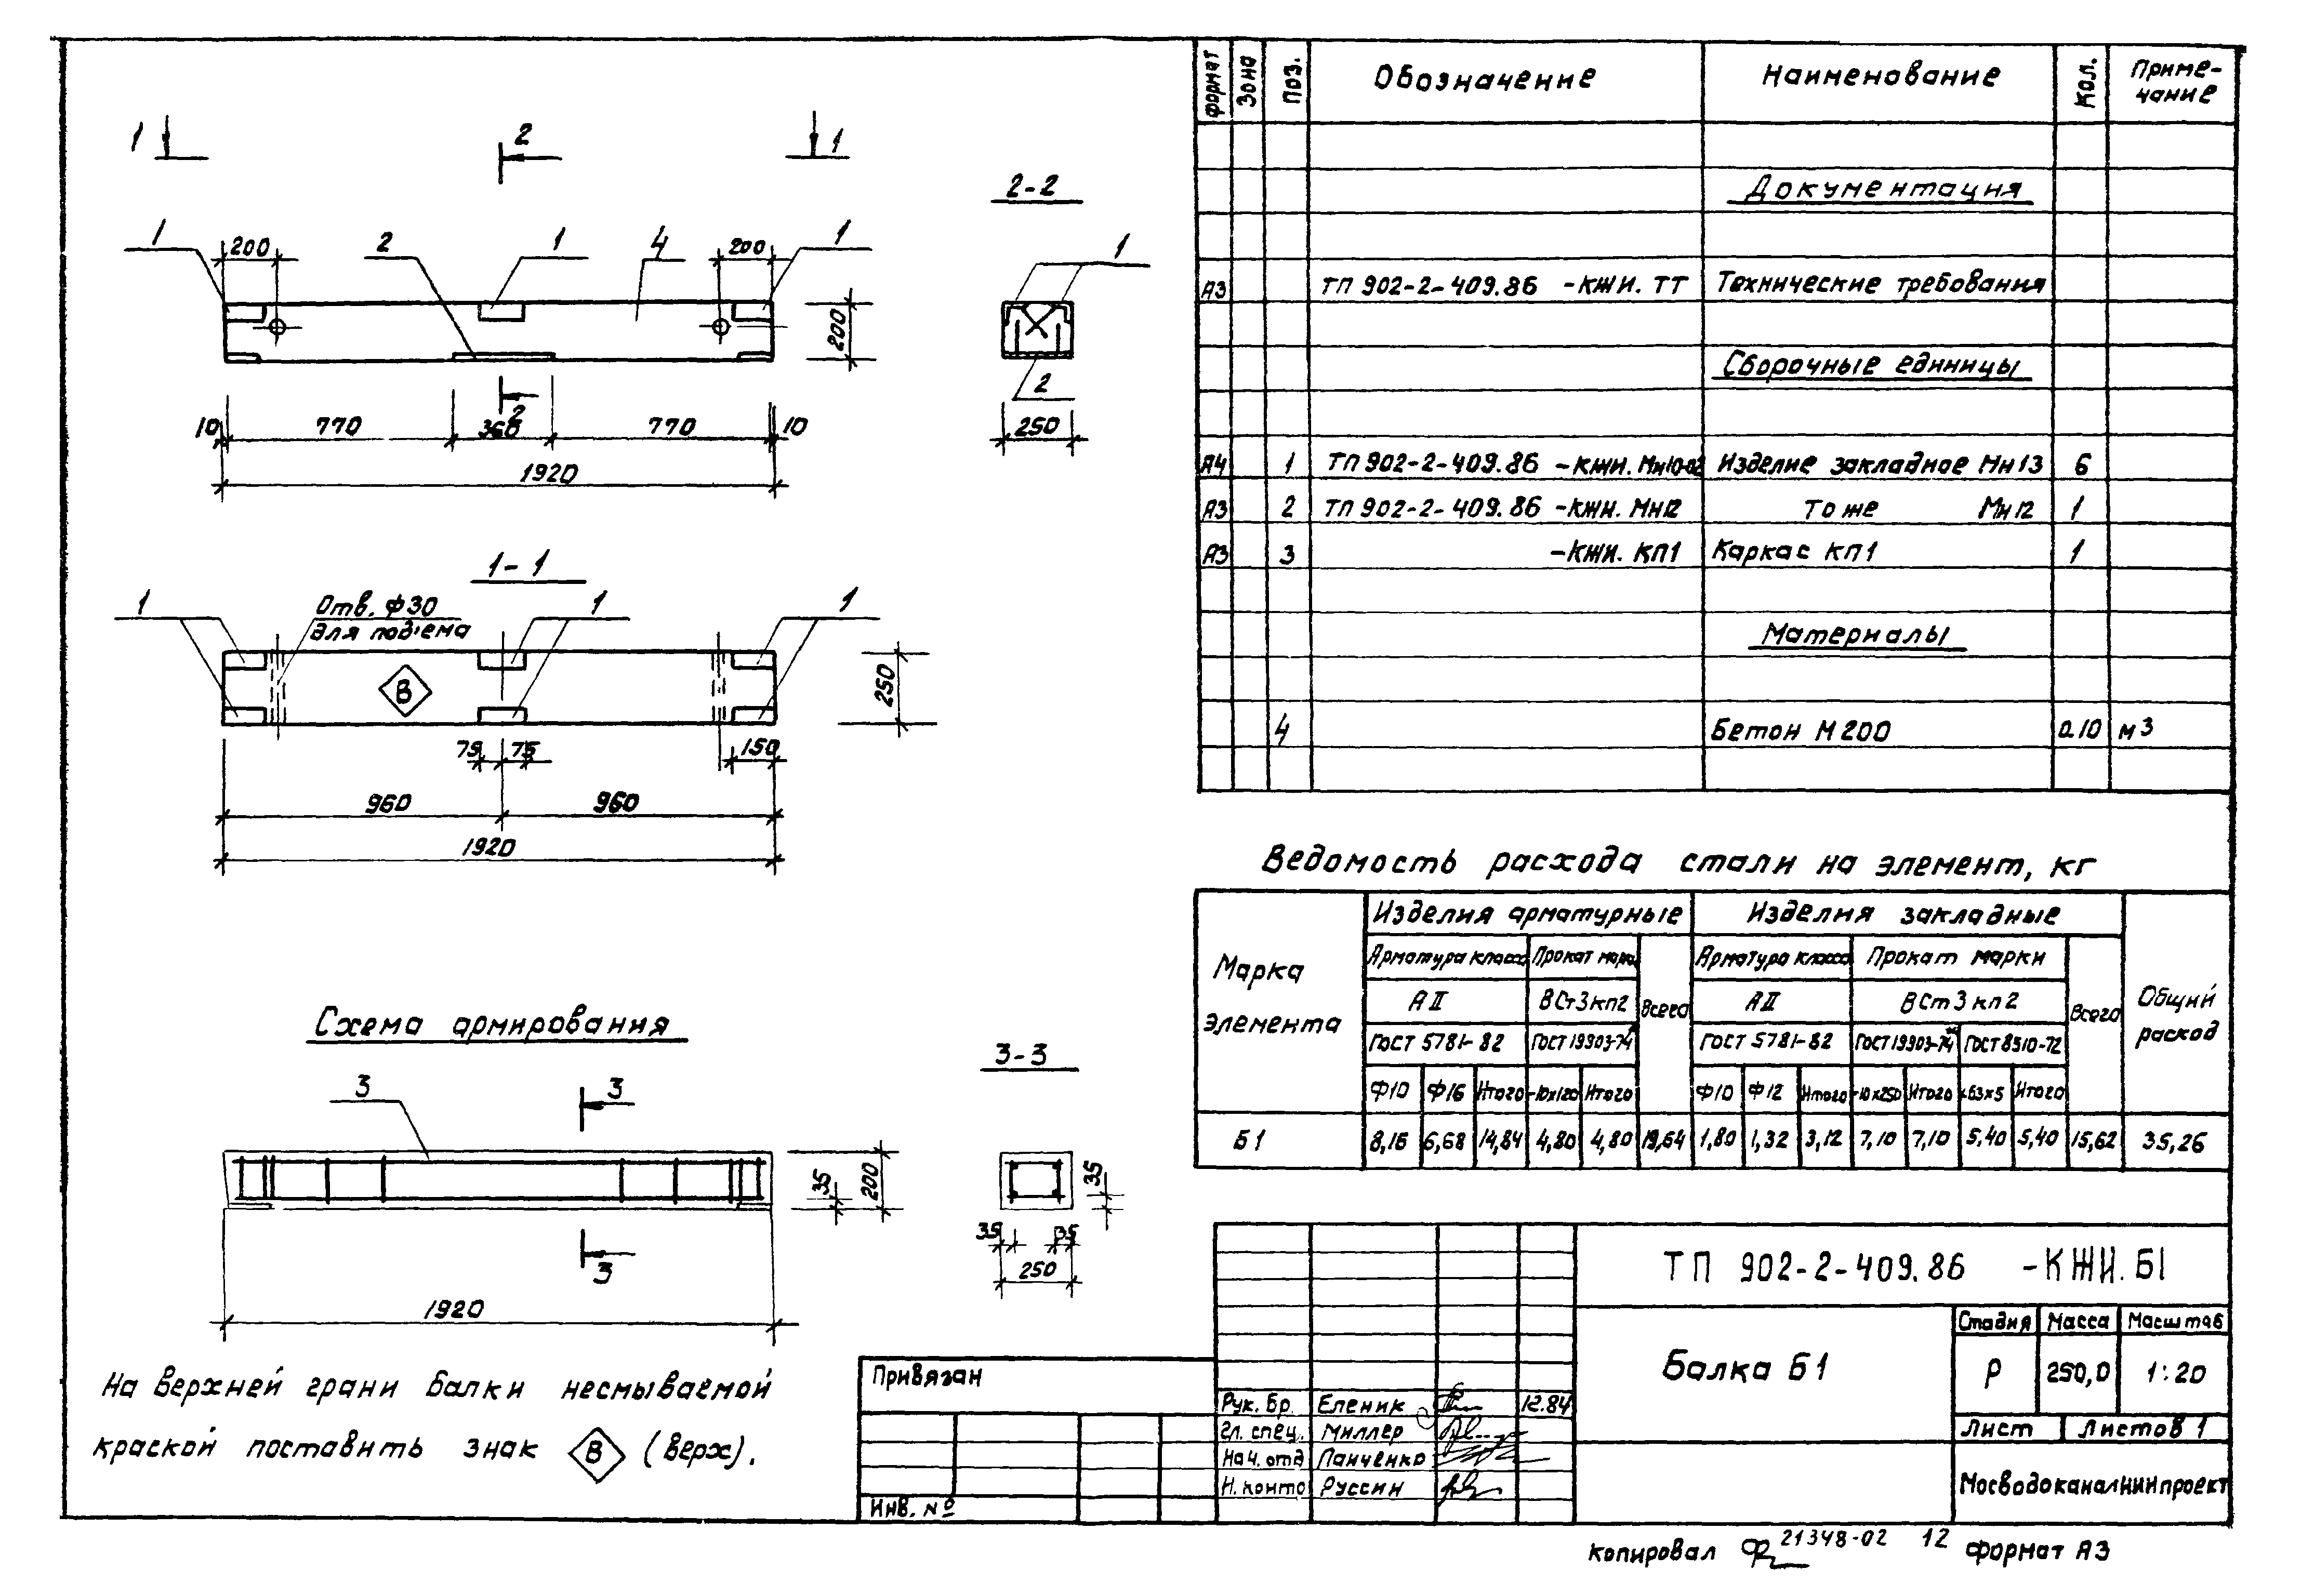 1 2 1
2-2
1 200 2 1 4 200 1
1
200
2
2
250
10 770 360 770 10
1920
1-1
1 Отв. ф30 1 1
для подъема
В
250
75 75 150
960 960
1920
Схема армирования
3-3
3 3
35 200 35
35 35
3
250
1920
На верхней грани балки несмываемой
краской поставить знак В (верх).
формат Зона Поз. Обозначение Наименование Кол. Приме-
чание
Документация
А3 ТП 902-2-409.86 -КЖИ. ТТ Технические требования
Сборочные единицы
А4 1 ТП 902-2-409.86 -КЖИ. Мн10-02 Изделие закладное Мн13 6
А3 2 ТП 902-2-409.86 -КЖИ. Мн12 То же Мн12 1
А3 3 -КЖИ. КП1 Каркас КП1 1
Материалы
4 Бетон М200 0.10 м3
Ведомость расхода стали на элемент, кг
Марка
элемента
Изделия арматурные Изделия закладные
Общий
расход
Арматура класса Прокат марки Всего Арматура класса Прокат марки Всего
АII ВСт3кп2 АII ВСт3кп2
ГОСТ 5781-82 ГОСТ 19903-74* ГОСТ 5781-82 ГОСТ 19903-74* ГОСТ 8510-72
Ф10 Ф16 Итого -10х120 Итого Ф10 Ф12 Итого -10х250 Итого 63х5 Итого
Б1 8,16 6,68 14,84 4,80 4,80 19,64 1,80 1,32 3,12 7,10 7,10 5,40 5,40 15,62 35,26
ТП 902-2-409.86 -КЖИ.Б1
Балка Б1
Стадия Масса Масштаб
Р 250,0 1:20
Лист Листов 1
Мосводоканалниипроект
Привязан
Инв. №
Рук. бр. Еленик 12.84
Гл. спец. Миллер
Нач. отд Панченко
Н. контр Руссин
копировал 21348-02 12 формат А3